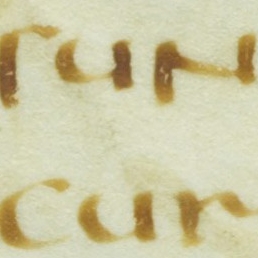 run
cur